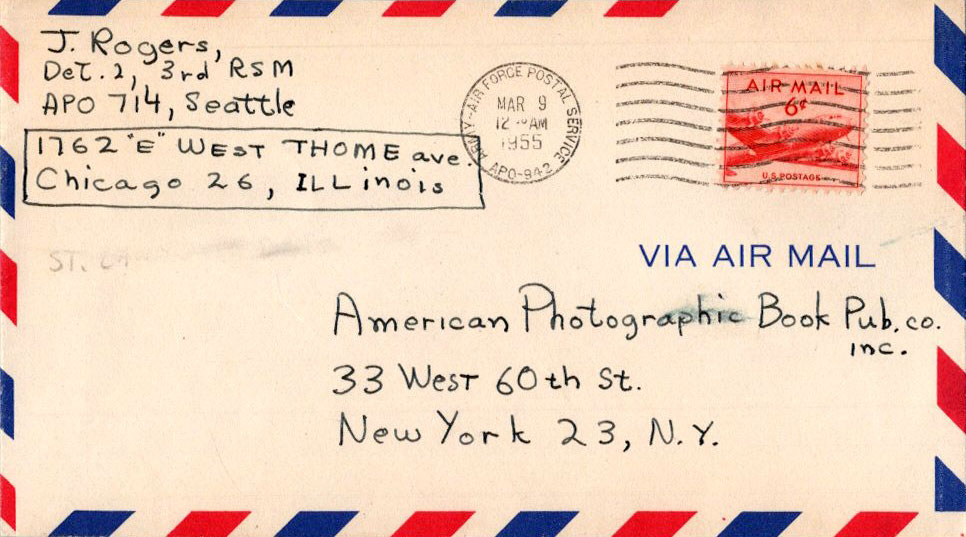 J. Rogers,
Det. 2, 3rd RSM
APO 714, Seattle
1762 "E" WEST THOME ave.
Chicago 26, ILLinois
ARMY-AIR FORCE POSTAL SERVICE
MAR 9
12 AM
1955
APO-942
AIR MAIL
6¢
U.S. POSTAGE
ST.
VIA AIR MAIL
American Photographic Book Pub. co.
inc.
33 West 60th St.
New York 23, N.Y.